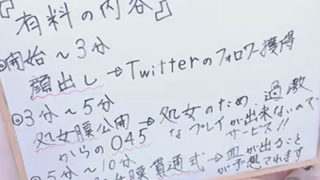 『有料の内容』
◎開始～3分
顔出し→Twitterのフォロワー獲得
◎3分～5分
処女膜公開→処女のため 過激
からの045 なプレイが出来ないので
サービス!!
5分～10分
貫通式→血が出ることが予想されます